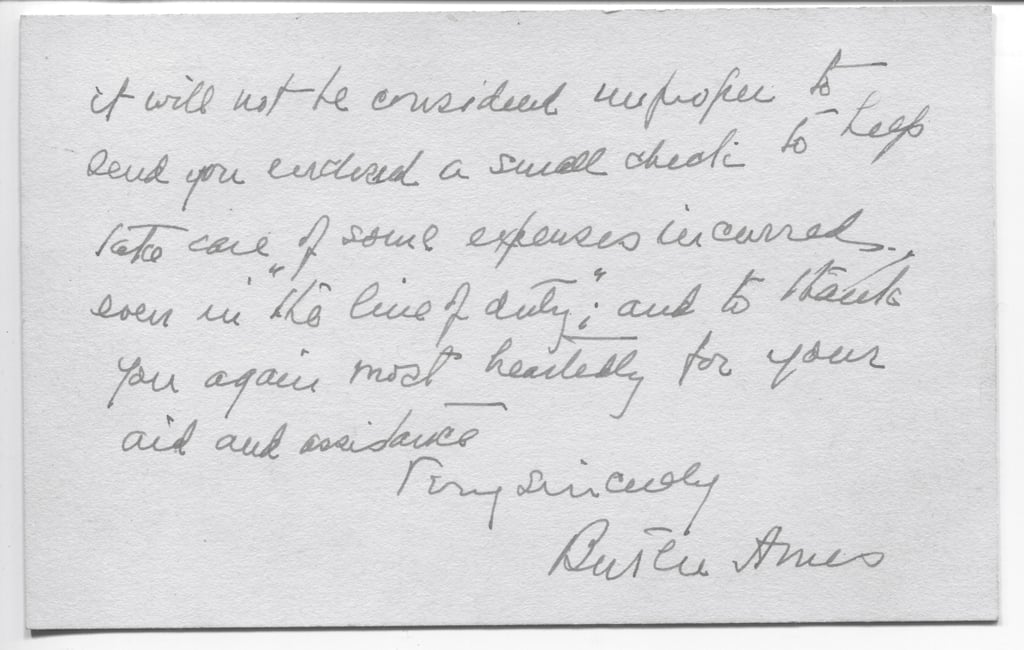 it will not be considered improper to
send you enclosed a small check to help
take care of some expenses incurred,
even in "the line of duty"; and to thank
you again most heartedly for your
aid and assistance
Very sincerely
Ames